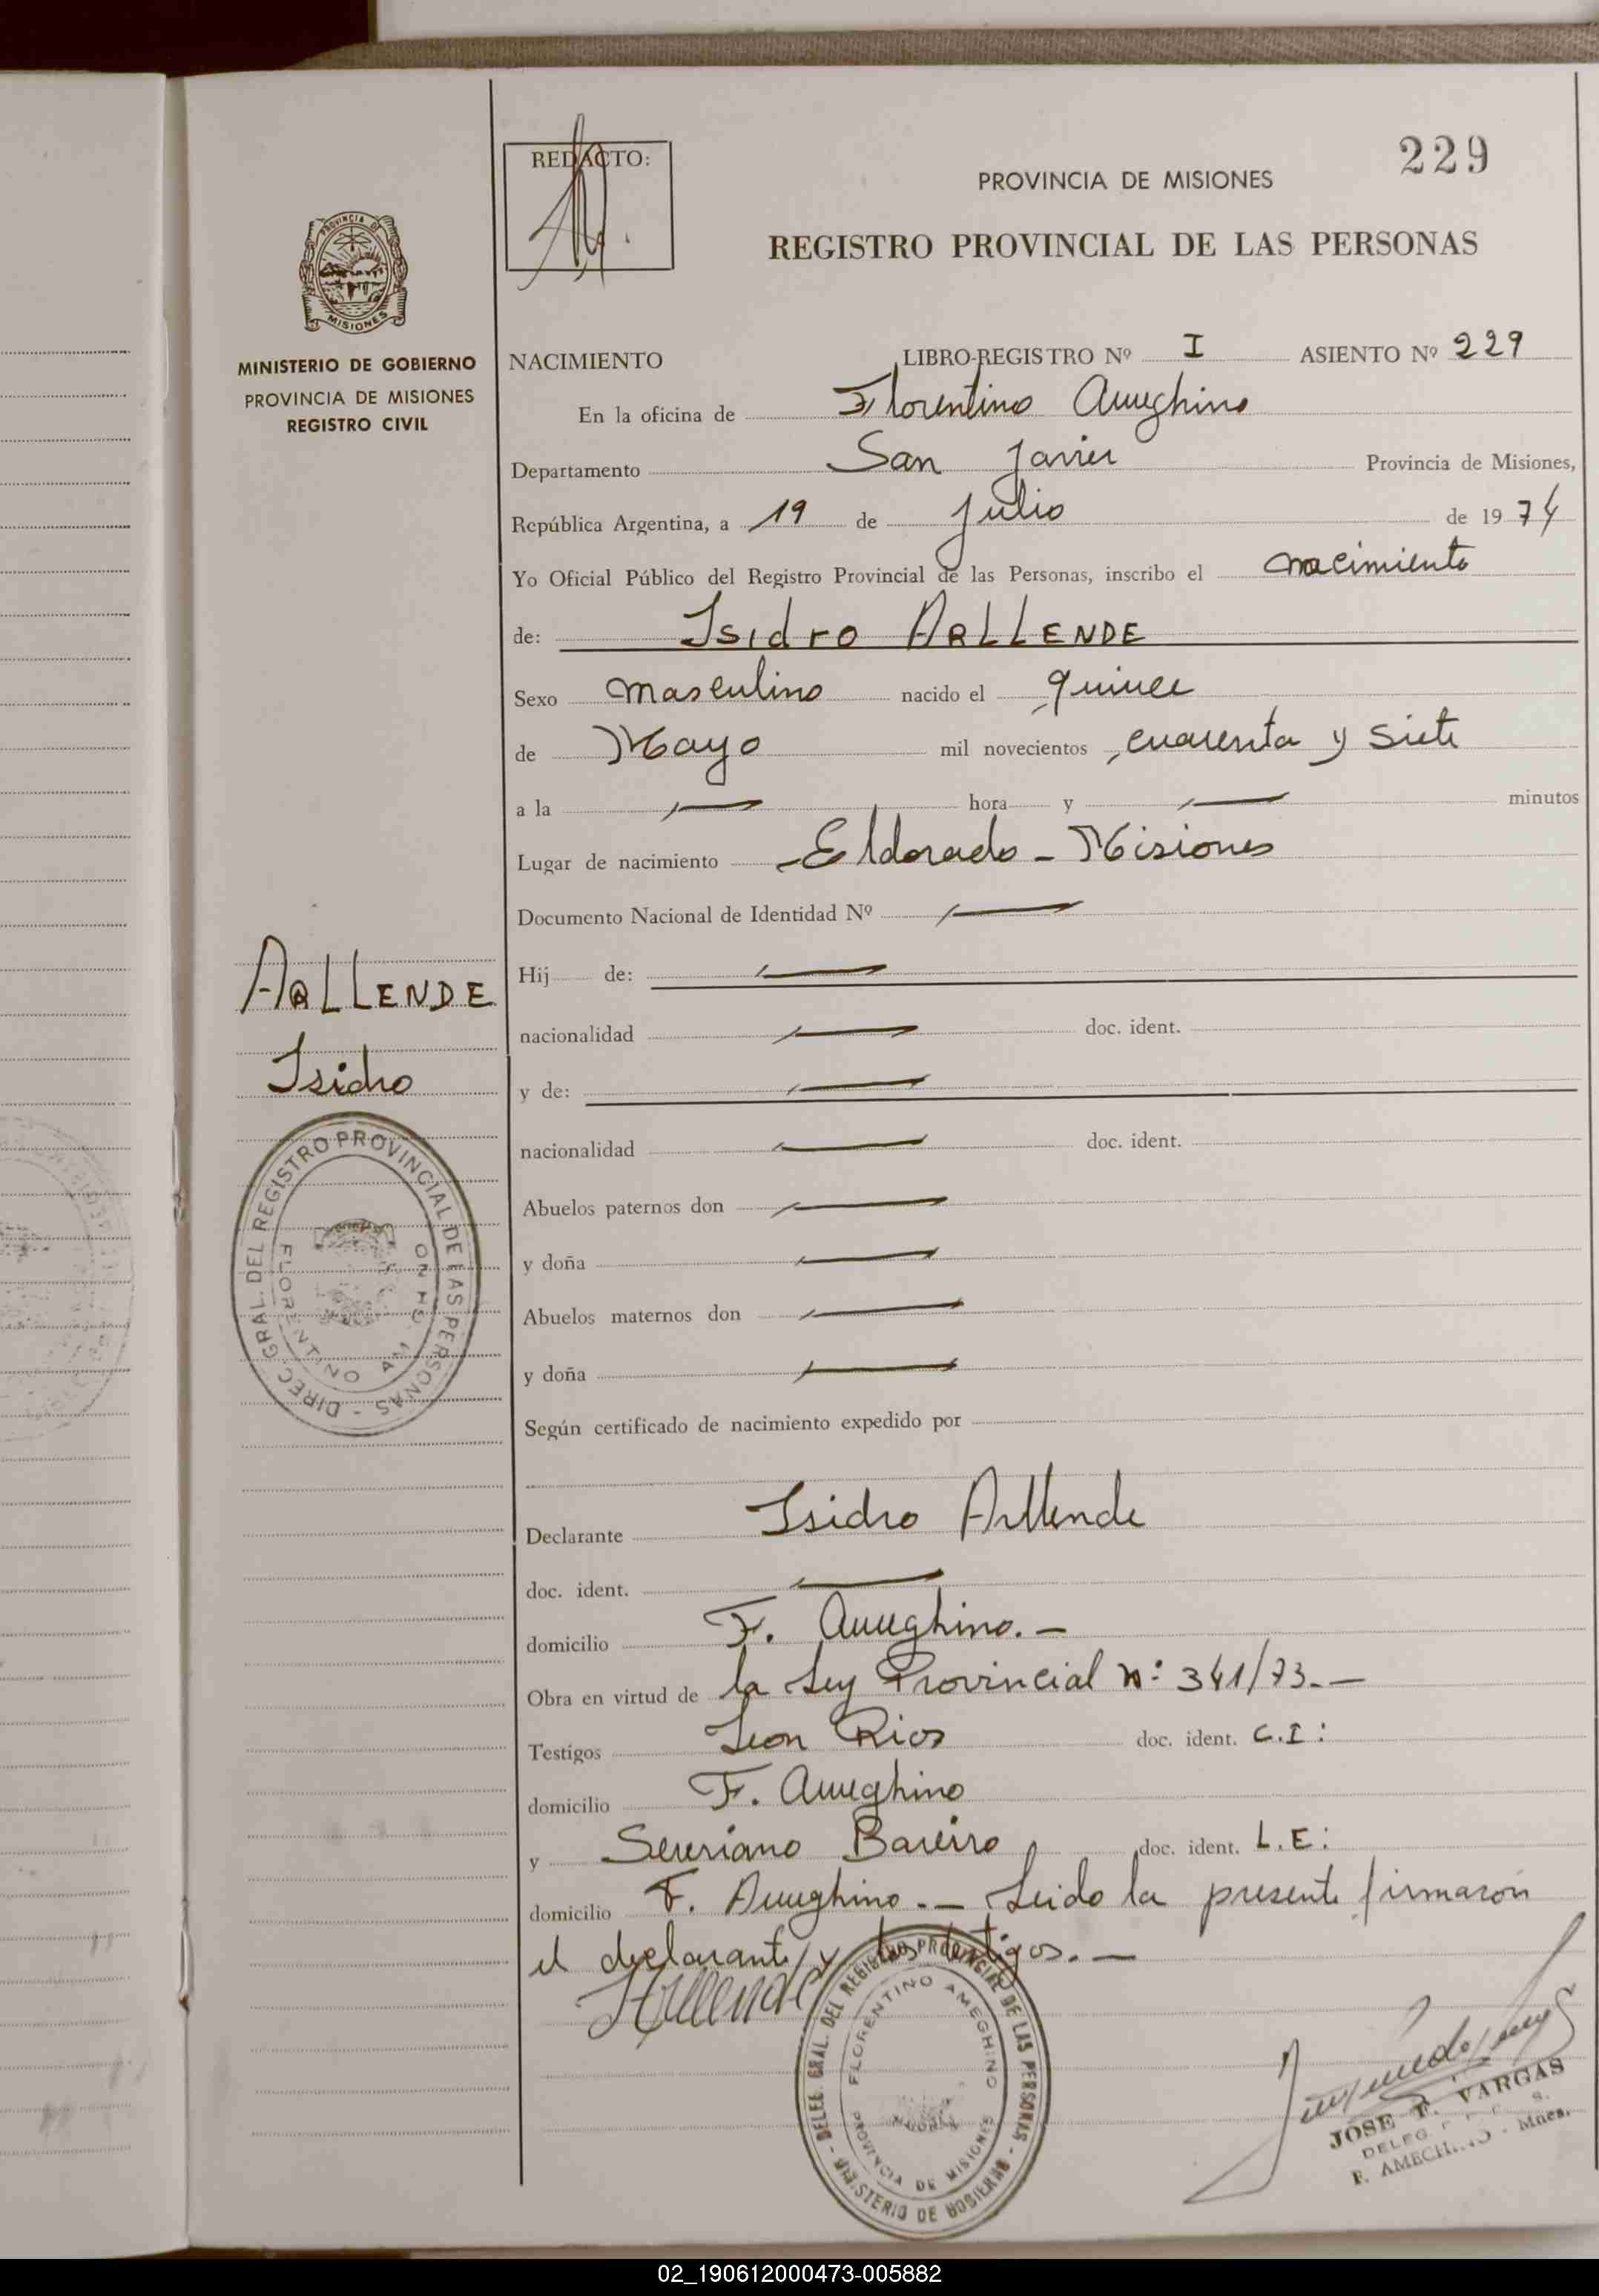 229
REDACTO:
PROVINCIA DE MISIONES
REGISTRO PROVINCIAL DE LAS PERSONAS
PROVINCIA DE
MISIONES
MINISTERIO DE GOBIERNO
PROVINCIA DE MISIONES
REGISTRO CIVIL
NACIMIENTO LIBRO-REGISTRO Nº I ASIENTO Nº 229
En la oficina de Florentino Ameghino
Departamento San Javier Provincia de Misiones,
República Argentina, a 19 de Julio de 1974
Yo Oficial Público del Registro Provincial de las Personas, inscribo el nacimiento
de: Isidro ARLLENDE
Sexo masculino nacido el quince
de Mayo mil novecientos cuarenta y siete
a la — hora y — minutos
Lugar de nacimiento Eldorado - Misiones
Documento Nacional de Identidad Nº —
Hij de: —
nacionalidad — doc. ident.
y de: —
nacionalidad — doc. ident.
Abuelos paternos don —
y doña —
Abuelos maternos don —
y doña —
Según certificado de nacimiento expedido por
Declarante Isidro Arllende
doc. ident. —
domicilio F. Ameghino. —
Obra en virtud de la Ley Provincial nº: 341/73. —
Testigos Leon Rios doc. ident. C.I:
domicilio F. Ameghino
y Severiano Bareiro doc. ident. L.E:
domicilio F. Ameghino. — Leido la presente firmaron
el declarante y los testigos. —
ARLLENDE
Isidro
DIREC. GRAL. DEL REGISTRO PROVINCIAL DE LAS PERSONAS -
FLORENTINO AMEGHINO
Arllende
DELEG. GRAL. DEL REGISTRO PROVINCIAL DE LAS PERSONAS - MINISTERIO DE GOBIERNO -
FLORENTINO AMEGHINO
PROVINCIA DE MISIONES
JOSE F. VARGAS
DELEG.
F. AMEGHINO - Mnes.
02_190612000473-005882